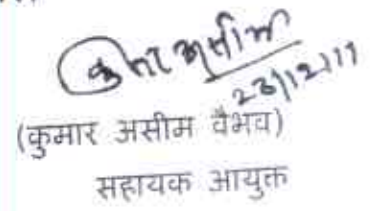 कुमार असीम
23/12/11
(कुमार असीम वैभव)
सहायक आयुक्त